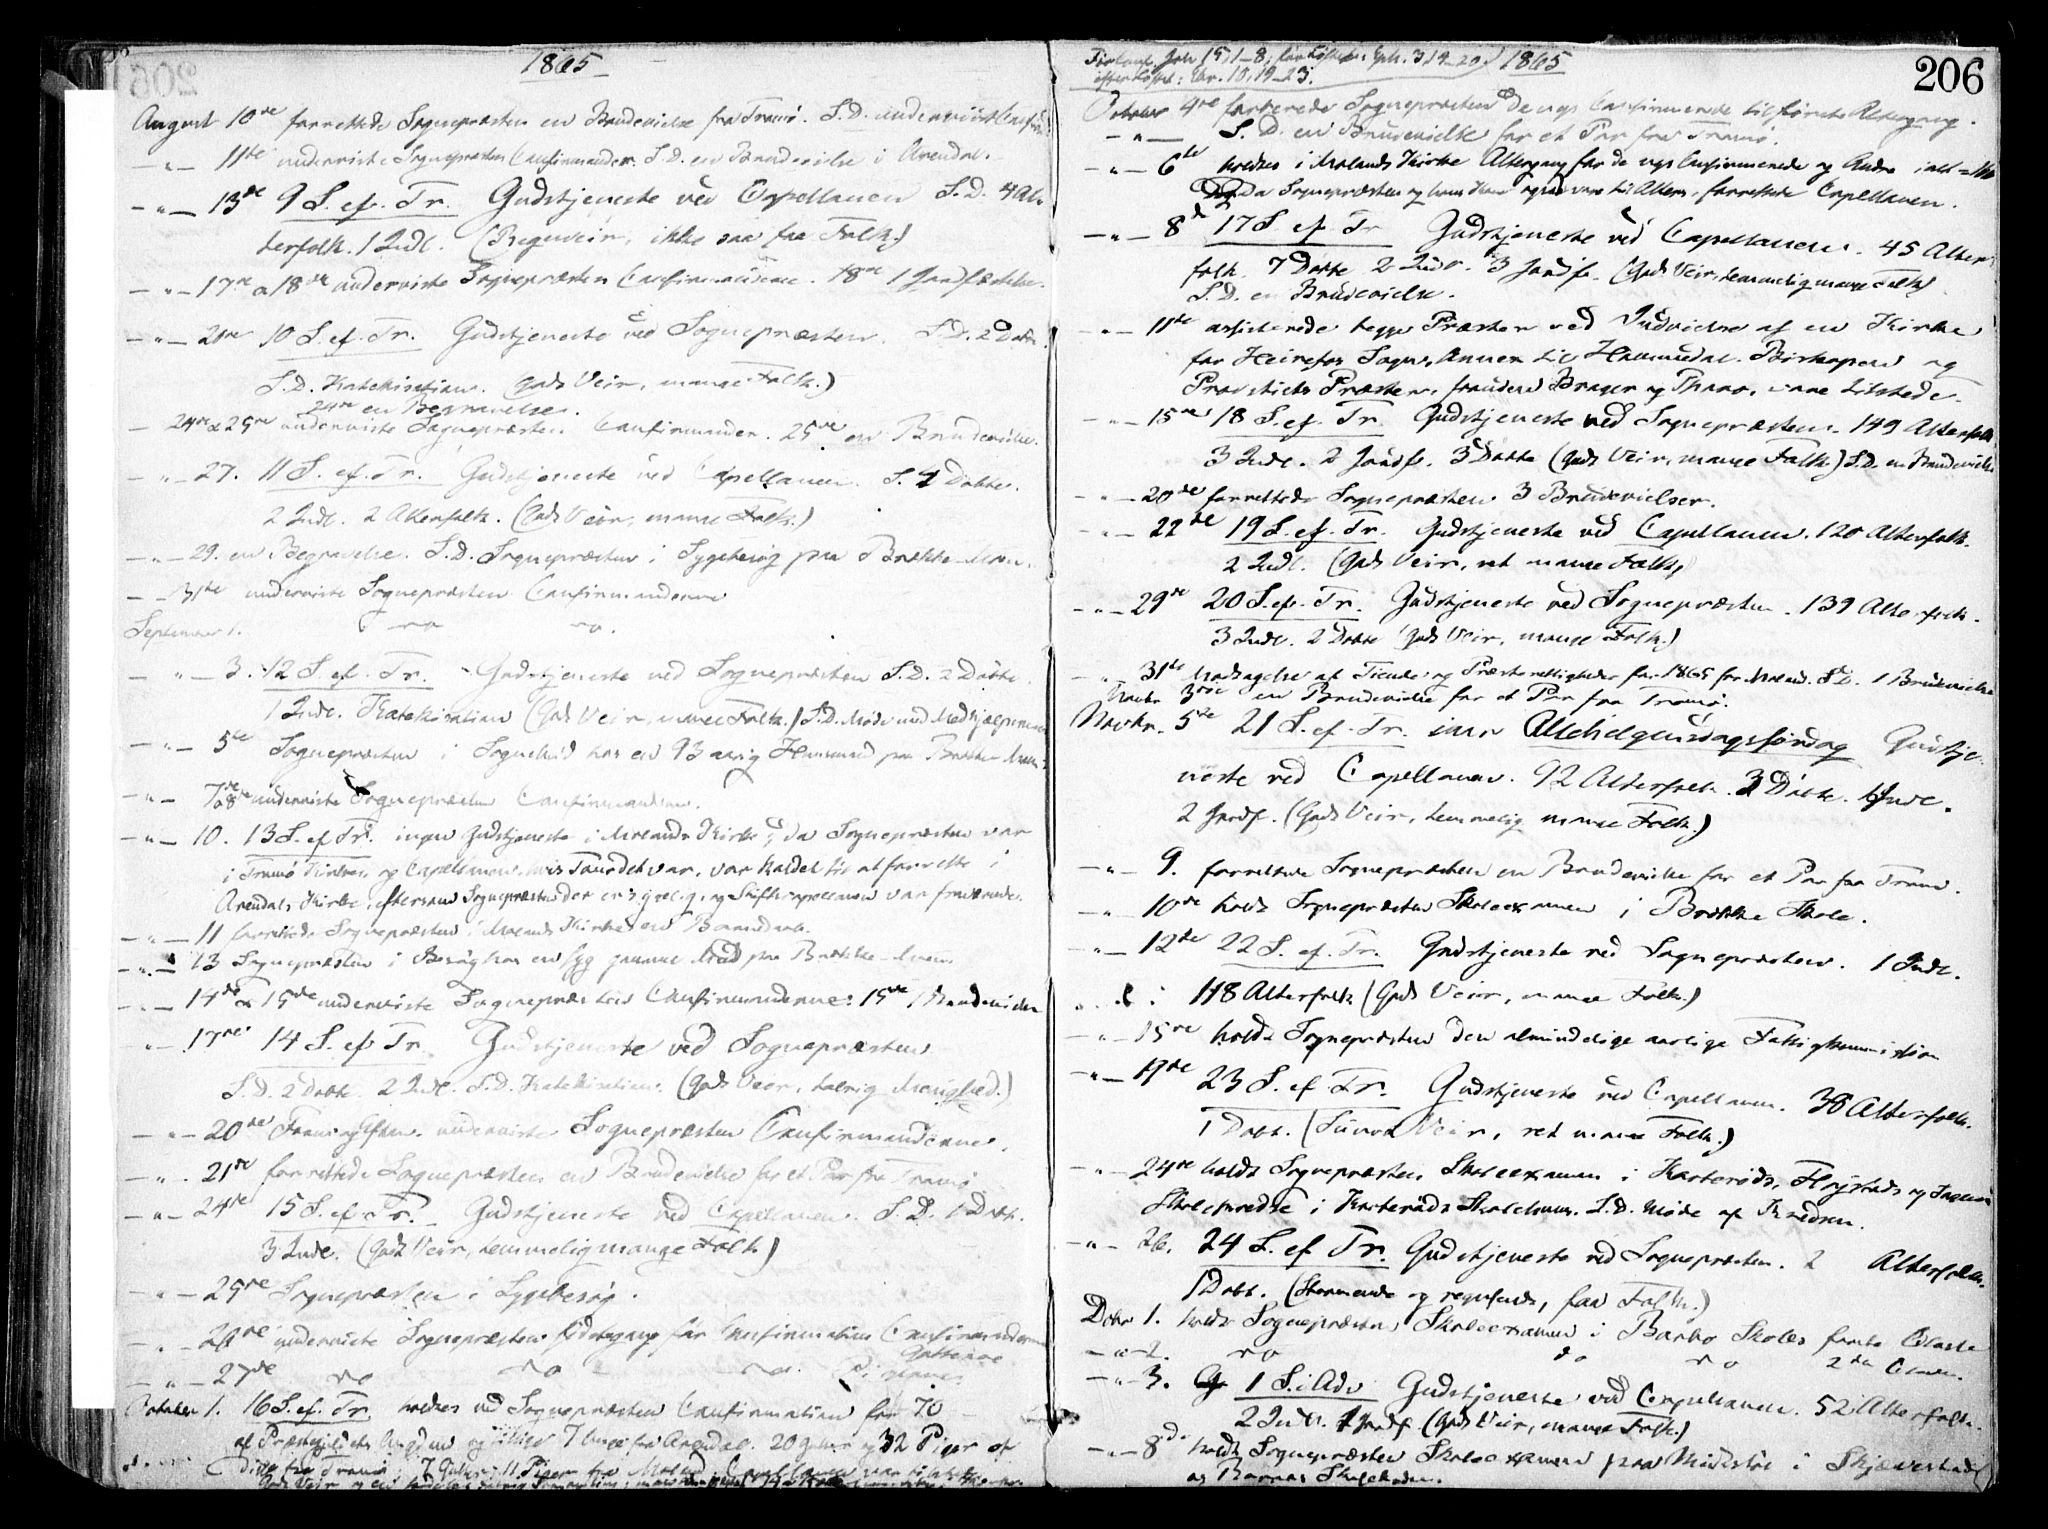 1865
August 10de forrettede Sognepræsten en Brudevielse fra Tromø. S.D. underviist Confirm
— " — 11te underviste Sognepræsten Confirmander. S.D. en Brudevielse i Arendal.
— " — 13de 9 S. ef. Tr. Gudstjeneste ved Capellanen S.D. 4 Al-
terfolk. 1 Indl. (Regnveir, ikke saa faa Folk)
— " — 17de & 18de underviste Sognepræsten Confirmanderne. 18de 1 Jordfæstelse.
— " — 20de 10 S. ef. Tr. Gudstjeneste ved Sognepræsten. S.D. 2 Døbte.
S.D. Katekisation. (Godt Veir, mange Folk.)
24de en Begravelse.
— 24de & 25de underviste Sognepræsten Confirmander. 25de en Brudevielse.
— " — 27. 11 S. ef. Tr. Gudstjeneste ved Capellanen. S. Døbte.
2 Indl. 2 Alterfolk. (Godt Veir, mange Folk.)
— " — 29. en Begravelse. S.D. Sognepræsten i Sygebesøg paa Brække-Moen.
— " — 31te underviste Sognepræsten Confirmanderne
September 1. do do.
— " — 3. 12 S. ef. Tr. Gudstjeneste ved Sognepræsten S.D. 2 Døbte.
1 Indl. Katekisation (Godt Veir, mange Folk.) S.D. Møde med Medhjælperne
— " — 5te Sognepræsten i Sognebud hos en 93 aarig Huusmand paa Brække Moen
— " — 7de & 8de underviste Sognepræsten Confirmanderne.
— " — 10. 13 S. ef. Tr. ingen Gudstjeneste i Molands Kirke, da Sognepræsten var
i Tromø Kirken og Capellanen, hvis Tour det var, var kaldet til at forrette i
Arendals Kirke, eftersom Sognepræsten der er sygelig, og Stiftscapellanen var fraværende.
— " — 11 forrettede Sognepræsten i Molands Kirke en Barnedaab.
— " — 13 Sognepræsten i Besøg hos en syg gammel Mand paa Brække-Moen.
— " — 14de & 15de underviste Sognepræsten Confirmanderne: 15de 1 Brudevielse
— " — 17de 14 S. ef. Tr. Gudstjeneste ved Sognepræsten
S.D. 2 Døbte. 2 Indl. S.D. Katekisation. (Godt Veir, talrig Menighed.)
— " — 20de underviste Sognepræsten Confirmanderne.
— " — 21de forrettede Sognepræsten en Brudevielse for et Par fra Tromø
— " — 24de 15 S. ef. Tr. Gudstjeneste ved Capellanen. S.D. 1 Døbt.
3 Indl. (Godt Veir, temmelig mange Folk)
— " — 25de Sognepræsten i Sygebesøg.
— " — 26de underviste Sognepræsten sidstegang før Confirmation Confirmanderne
Gutterne
— " — 27de do do do. Pigerne
October 1. 16 S. ef. Tr. holdtes ved Sognepræsten Confirmation for 70
af Præstegjeldets Ungdom og 7 fra Arendal. 20 Gutter og 32 Piger af
Ditto fra Tromø; 7 Gutter, 11 Piger fra
Forland. Joh. 15, 1-8; før Eph. 3, 19-20
efter : Ebr. 10, 19-23.
1865
206
October 4de forberede Sognepræsten de nys Confirmerede til første Altergang.
— " — S.D. en Brudevielse for et Par fra Tromø.
— " — 6te holdtes i Molands Kirke Altergang for de nys Confirmerede og Andre, i alt
Da Sognepræsten og hans Kone ogsaa vare til Alters, forrettede Capellanen.
— " — 8de 17 S. ef. Tr. Gudstjeneste ved Capellanen. 45 Alter-
folk. 7 Døbte 2 Indl. 3 Jordf. (Godt Veir, temmelig mange Folk)
S.D. en Brudevielse.
— " — 11te assisterede begge Præster ved Indvielse af en Kirke
for Heirefos Sogn, Annex til Hommedal. Biskopen og
Provstiets Præster, foruden Brager og Thuno, vare tilstede.
— " — 15de 18 S. ef. Tr. Gudstjeneste ved Sognepræsten. 149 Alterfolk
3 Indl. 2 Jordf. 3 Døbte (Godt Veir, mange Folk) S.D. en Brudevielse
— " — 20de forrettede Sognepræsten 3 Brudevielser.
— " — 22de 19 S. ef. Tr. Gudstjeneste ved Capellanen. 120 Alterfolk.
2 Indl. (Godt Veir, ret mange Folk)
— " — 29de 20 S. ef. Tr. Gudstjeneste ved Sognepræsten. 139 Alterfolk.
3 Indl. 2 Døbte (Godt Veir, mange Folk.)
— " — 31te Modtagelse af Tiende og Præsterettigheder for 1865 for Moland. S.D. 1 Brudevielse
Novbr. 3die en Brudevielse for et Par fra Tromø.
Novbr. 5te 21 S. ef. Tr. Allehelgensdagssøndag Gudstje-
neste ved Capellanen. 92 Alterfolk. 3 Døbte. Indl.
2 Jordf. (Godt Veir, temmelig mange Folk.)
— " — 9. forrettede Sognepræsten en Brudevielse for et Par fra Tromø.
— " — 10de holdt Sognepræsten Skoleexamen i Brække Skole.
— " — 12te 22 S. ef. Tr. Gudstjeneste ved Sognepræsten. 1 Indl.
118 Alterfolk (Godt Veir, mange Folk.)
— " — 15de holdt Sognepræsten den almindelige aarlige Fattigkommission
— " — 19de 23 S. ef. Tr. Gudstjeneste ved Capellanen. 38 Alterfolk.
1 Døbt. (Suurt Veir, ret mange Folk.)
— " — 24de holdt Sognepræsten Skoleexamen i Karterøds, Fløystads og
Skolekredse i Karterøds Skolehuus. S.D. Møde af Kredsen.
— " — 26. 24 S. ef. Tr. Gudstjeneste ved Sognepræsten. 2 Alterfolk.
1 Døbt. (Stormende og regnfuldt, faa Folk.)
Decbr 1. holdt Sognepræsten Skoleexamen i Barbo Skoles første Classe
— " — 2. do do do 2den Classe.
— " — 3. 1 S. i Adv. Gudstjeneste ved Capellanen. 52 Alterfolk.
2 Indl. 1 Jordf. (Godt Veir, mange Folk)
— " — 8de holdt Sognepræsten Skoleexamen paa i Skjævestad
og Skolekreds.